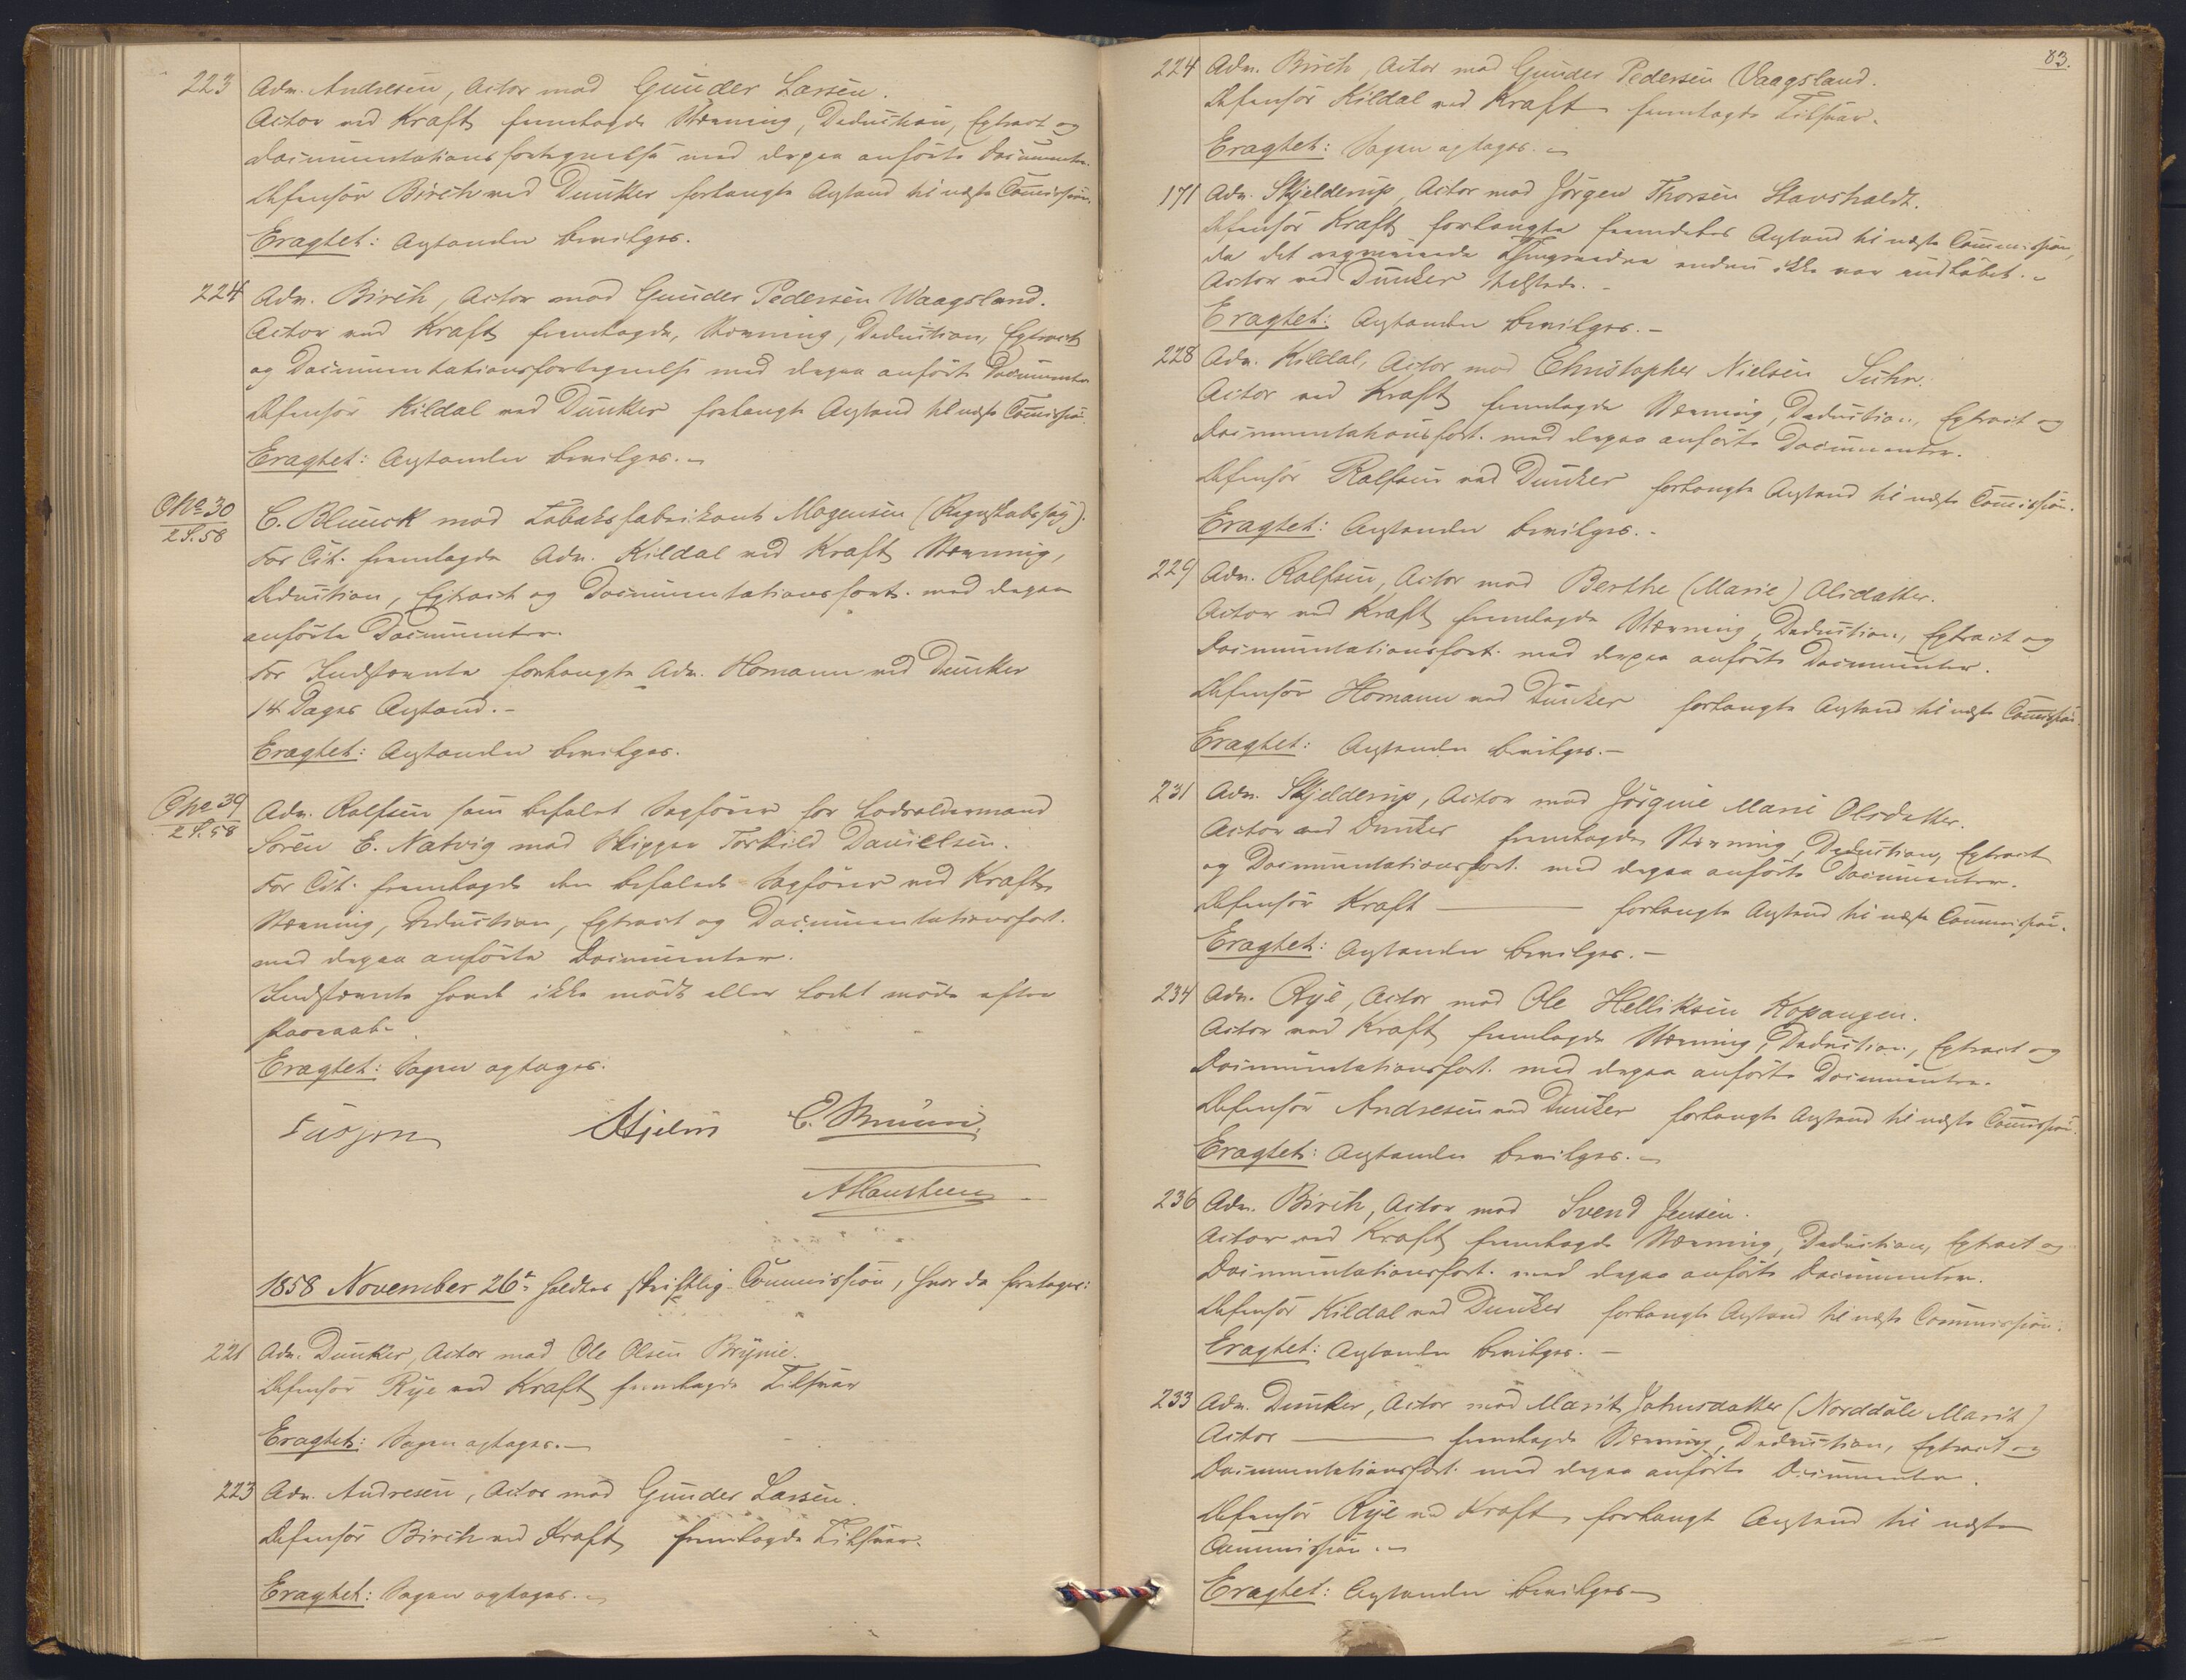 223 Adv. Andresen, Actor mod Gunder Larsen.
Actor ved Kraft fremlagde Stævning, Deduction, Extract og
Documentationsfortegnelse med derpaa anförte Documenter.
Defensor Birch ved Dunker forlangte Anstand til næste Commission.
Eragtet: Anstanden bevilges.
224 Adv. Birch, Actor mod Gunder Pedersen Waagsland.
Actor ved Kraft fremlagde, Stævning, Deduction, Extract
og Documentationsfortegnelse med derpaa anförte Documenter
Defensor Kildal ved Dunker forlangte Anstand til næste Commission.
Eragtet: Anstanden bevilges.
No 30
2 S. 58
C. Blunck mod Tobaksfabrikant Mogensen (Regnskabssag).
For Cit. fremlagde Adv. Kildal ved Kraft Stævning,
Deduction, Extract og Documentationsfort. med derpaa
anförte Documenter.
For Indstævnte forlangte Adv. Homann ved Dunker
14 Dages Anstand.-
Eragtet: Anstanden bevilges.
No 39
2 S. 58
Adv. Rolfsen som befalet Sagförer for Lodsoldermand
Sören E. Natvig mod Skipper Torkild Danielsen.
For Cit. fremlagde den befalede Sagförer ved Kraft
Stævning, Deduction, Extract og Documentationsfort.
med derpaa anförte Documenter.
Indstævnte havde ikke mödt eller ladet möde efter
Paaraab.
Eragtet: Sagen optages.
Hjelm E. Bruun
AHansteen
1858 November 26de holdtes skriftlig Commission, hvor da foretages:
221 Adv. Dunker, Actor mod Ole Olsen Brynie.
Defensor Rye ved Kraft fremlagde Tilsvar
Eragtet: Sagen optages.-
223 Adv. Andresen, Actor mod Gunder Larsen.
Defensor Birch ved Kraft fremlagde Tilsvar.
Eragtet: Sagen optages.
83.
224 Adv. Birch, Actor mod Gunder Pedersen Vaagsland.
Defensor Kildal ved Kraft fremlagde Tilsvar.
Eragtet: Sagen optages.
171 Adv. Skjelderup, Actor mod Jörgen Thorsen Stavsholdt.
Defensor Kraft forlangte fremdeles Anstand til næste Commission,
da det endnu ikke var indlöbet.
Actor ved Dunker tilstede.-
Eragtet: Anstanden bevilges.-
228 Adv. Kildal, Actor mod Christopher Nielsen Suhr.
Actor ved Kraft fremlagde Stævning, Deduction, Extract og
Documentationsfort. med derpaa anförte Documenter.
Defensor Rolfsen ved Dunker forlangte Anstand til næste Commission.
Eragtet: Anstanden bevilges.-
229 Adv. Rolfsen, Actor mod Berthe (Marie) Olsdatter.
Actor ved Kraft fremlagde Stævning, Deduction, Extract og
Documentationsfort. med derpaa anförte Documenter.
Defensor Homann ved Dunker forlangte Anstand til næste Commission.
Eragtet: Anstanden bevilges.-
231 Adv. Skjelderup, Actor mod Jörgine Marie Olsdatter.
Actor ved Dunker fremlagde Stævning, Deduction, Extract
og Documentationsfort. med derpaa anförte Documenter.
Defensor Kraft forlangte Anstand til næste Commission.
Eragtet: Anstanden bevilges.-
234 Adv. Rye, Actor mod Ole Helliksen Kopangen.
Actor ved Kraft fremlagde Stævning, Deduction, Extract og
Documentationsfort. med derpaa anförte Documenter.
Defensor Andresen ved Dunker forlangte Anstand til næste Commission.
Eragtet: Anstanden bevilges.-
236 Adv. Birch, Actor mod Svend Jensen.
Actor ved Kraft fremlagde Stævning, Deduction, Extract og
Documentationsfort. med derpaa anförte Documenter.
Defensor Kildal ved Dunker forlangte Anstand til næste Commission.
Eragtet: Anstanden bevilges.-
233 Adv. Dunker, Actor mod Marit Johnsdatter (Norddöle Marit)
Actor fremlagde Stævning, Deduction, Extract og
Documentationsfort. med derpaa anförte Documenter.
Defensor Rye ved Kraft forlangte Anstand til næste
Commission.-
Eragtet: Anstanden bevilges